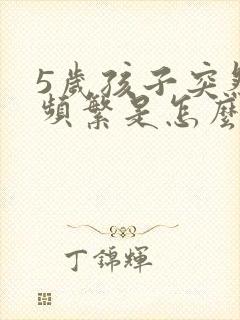 5歲孩子突然
頻繁是怎麼
丁錦輝